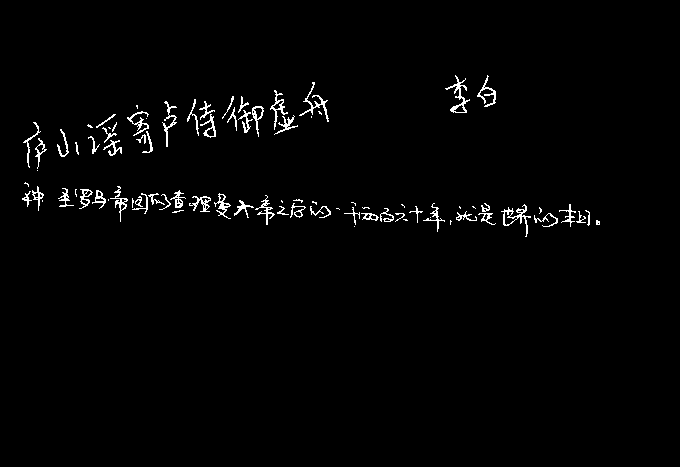 庐山谣寄卢侍御虚舟 李白
神圣罗马帝国的查理曼大帝之后的一千两百六十年，就是世界的本相。